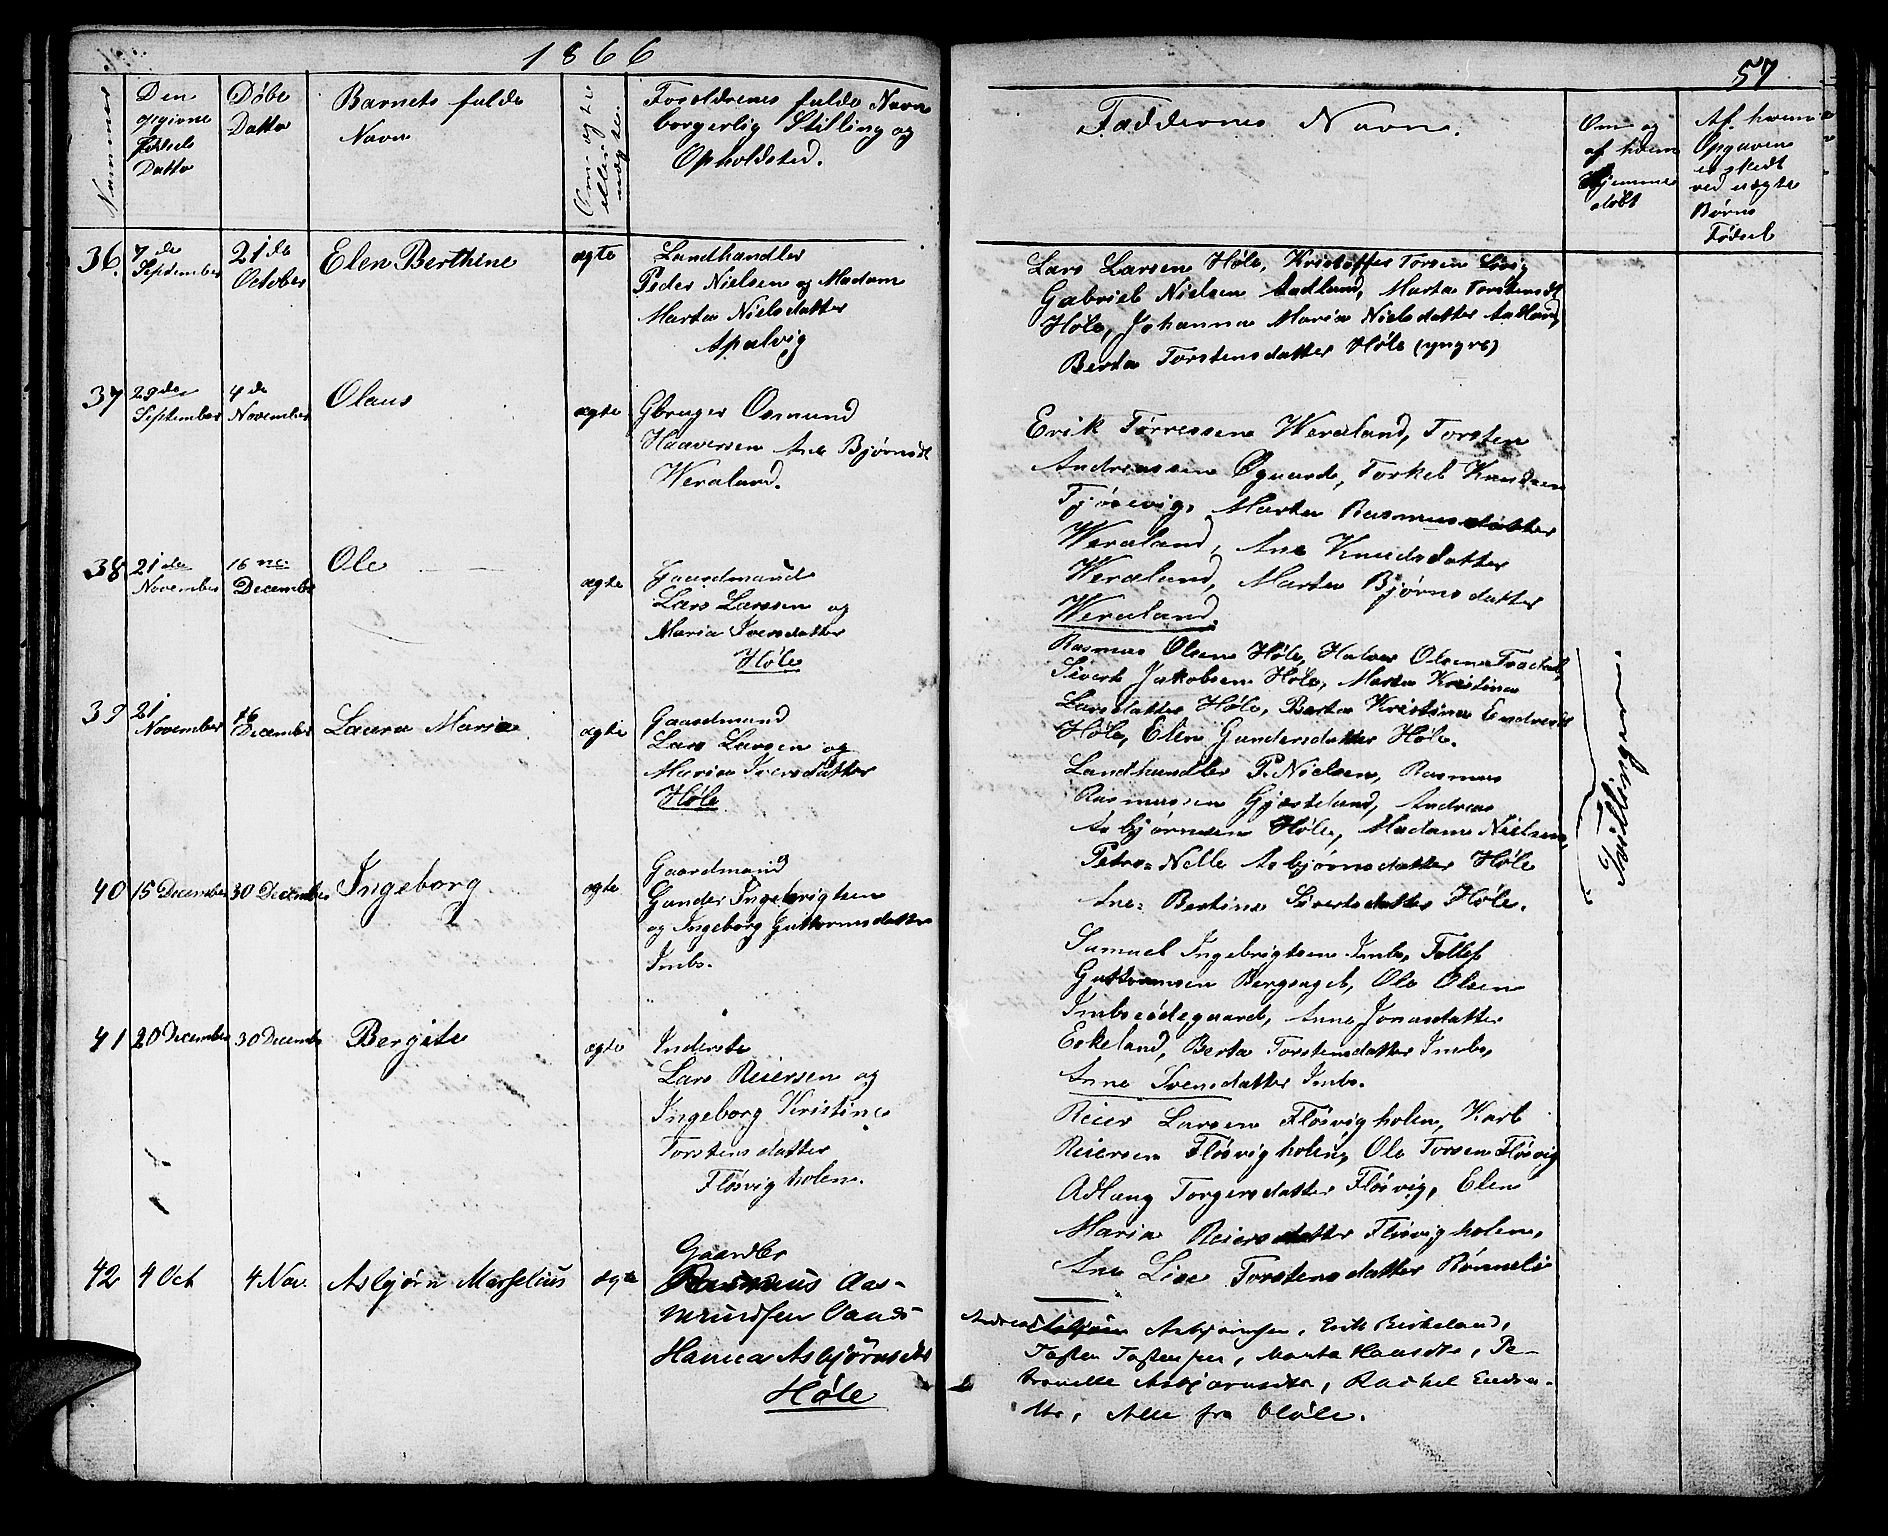 1866
57
Nummer
Den opgivne Fødsels Datto
Døbe Datto
Barnets fulde Navn
Om ægte eller uægte.
Forældrenes fulde Navn borgerlig Stilling og Opholdsted.
Faddernes Navne.
Om og af hvem Hjemme døbt
Af hvem Opgaven er skedt ved uægte Børns Fødsel
36.
7de September
21de October
Elen Berthine
ægte
Landhandler
Peder Nielsen og Madam
Marta Nielsdatter
Apalvig
Lars Larsen Høle, Kristoffer Torsen
Gabriel Nielsen Aadland, Marta Torstensdt
Høle, Johanna Maria Nielsdatter Aadland,
Berta Torstensdatter Høle (yngre)
37
29de September
4de November
Olaus
ægte
Gbruger Osmund
Haaversen Ane Bjørnsdt
Weraland.
Erik Torressen Weraland, Torsten
Andreassen Øgaard, Torkel Knudsen
Tjøsevig, Marta Rasmusdatter
Weraland, Ane Knudsdatter
Weraland, Marta Bjørnsdatter
Weraland.
38
21de November
16ne December
Ole
ægte
Gaardmand
Lars Larsen og
Maria Iversdatter
Høle
Rasmus Olsen Høle, Halvor Olsen
Sivert Jakobsen Høle, Marta Kristina
Larsdatter Høle, Berta Kristina Endresdt
Høle, Elen Gundersdatter Høle.
39
21 November
16 December
Laura Maria
ægte
Gaardmand
Lars Larsen og
Maria Iversdatter
Høle
Landhandler P. Nielsen, Rasmus
Rasmussen Gjæsteland, Andreas
Asbjørnsen Høle, Madame Nielsen,
Petro=Nelle Asbjørnsdatter Høle
Ane Bertine Sivertsdatter Høle.
Tvillingerne
40
15 December
30 December
Ingeborg
ægte
Gaardmand
Gunder Ingebrigtsen
og Ingeborg Guttormsdatter
Imbs.
Samuel Ingebrigtsen Imbs, Tollef
Guttormsen Bergsagel, Ole Olsen
Imbsødegaard, Anne Jonasdatter
Eskeland, Berta Torstensdatter Imbs,
Anne Svensdatter Imbs.
41
20 December
30 Decembr
Bergite
ægte
Inderste
Lars Reiersen og
Ingeborg Kristine
Torstensdatter
Fløsvigholen.
Reier Larsen Fløsvigholen, Karl
Reiersen Fløsvigholen, Ole Torsen Fløsvig
Adlaug Torgersdatter Fløsvig, Elen
Maria Reiersdatter Fløsvigholen,
Ane Lise Torstensdatter Rønneli
42
4 Oct
4 Nov.
Asbjørn Marselius
ægte
Gaardbr
Rasmus Aas-
mundsen
Hanna Asbjørnsdtr
Høle
Andreas Asbjørnsen, Erik Birkeland,
Tosten Tostensen, Marta Hansdtr, Pe-
tronelle Asbjørnsdtr, Rachel Endres-
dtr, Alle fra Høle.